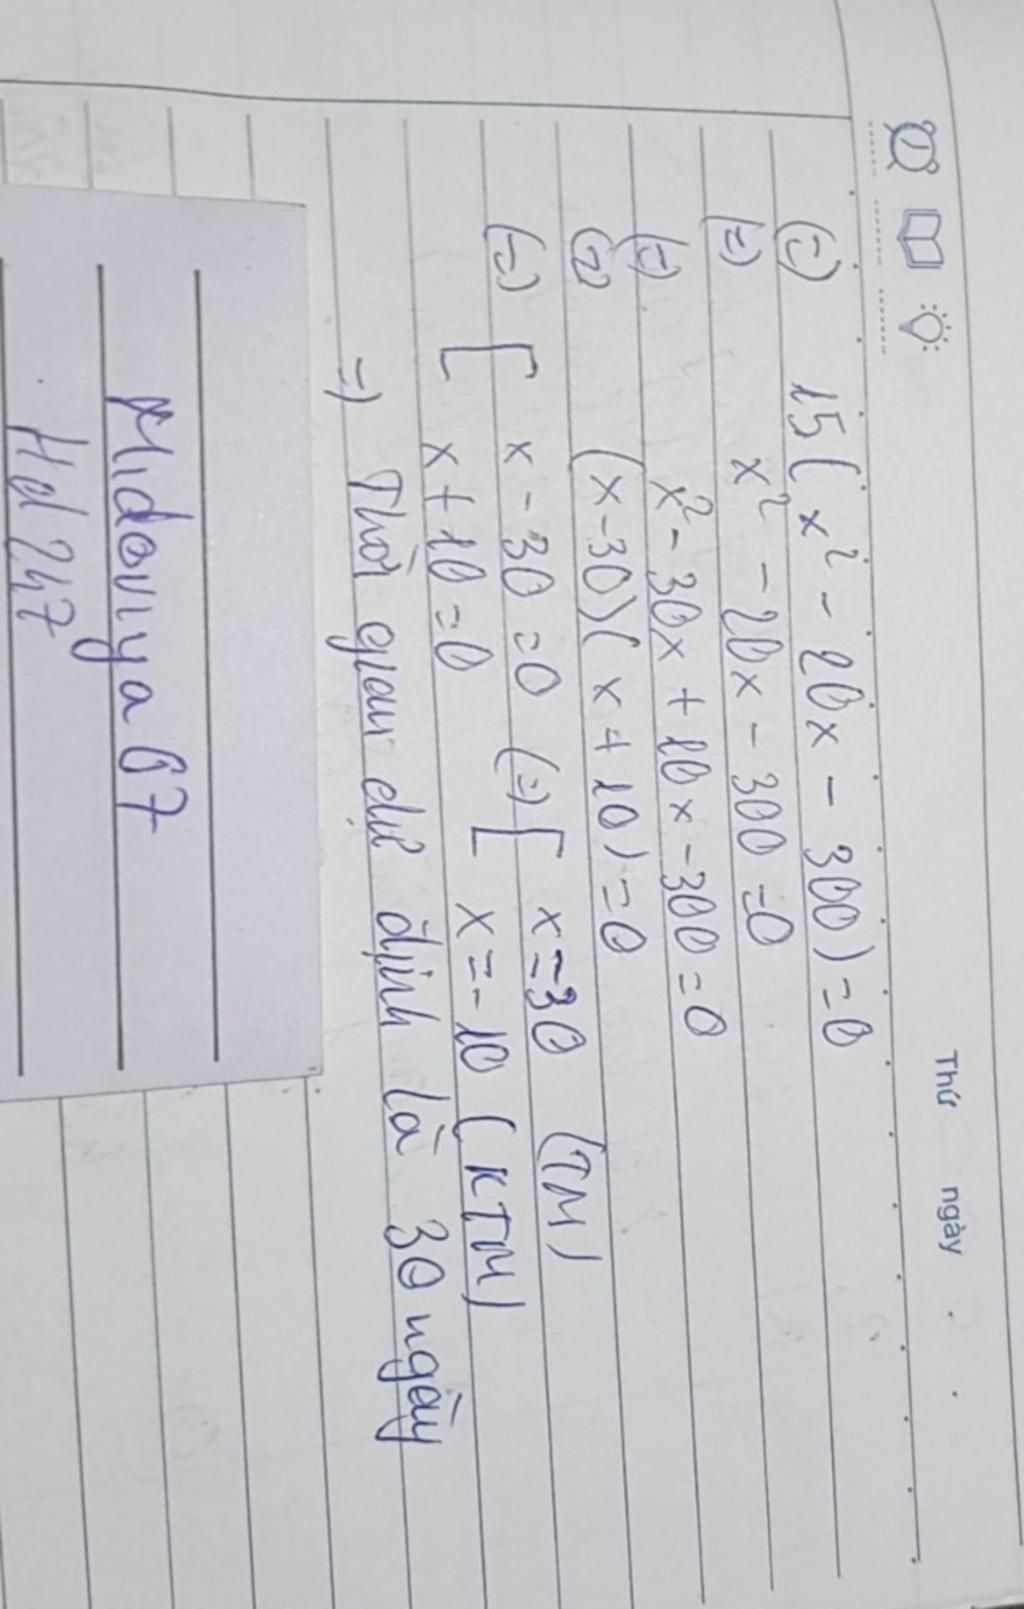 Thứ ngày
(=) 15(x² - 20x - 300) = 0
(=) x² - 20x - 300 = 0
(=) x² - 30x + 10x - 300 = 0
(=) (x - 30)(x + 10) = 0
(=) [ x - 30 = 0 (=) [ x = 30 (TM)
x + 10 = 0 x = -10 (KTM)
=) Thời gian dự định là 30 ngày
Midoriya67
Hd247